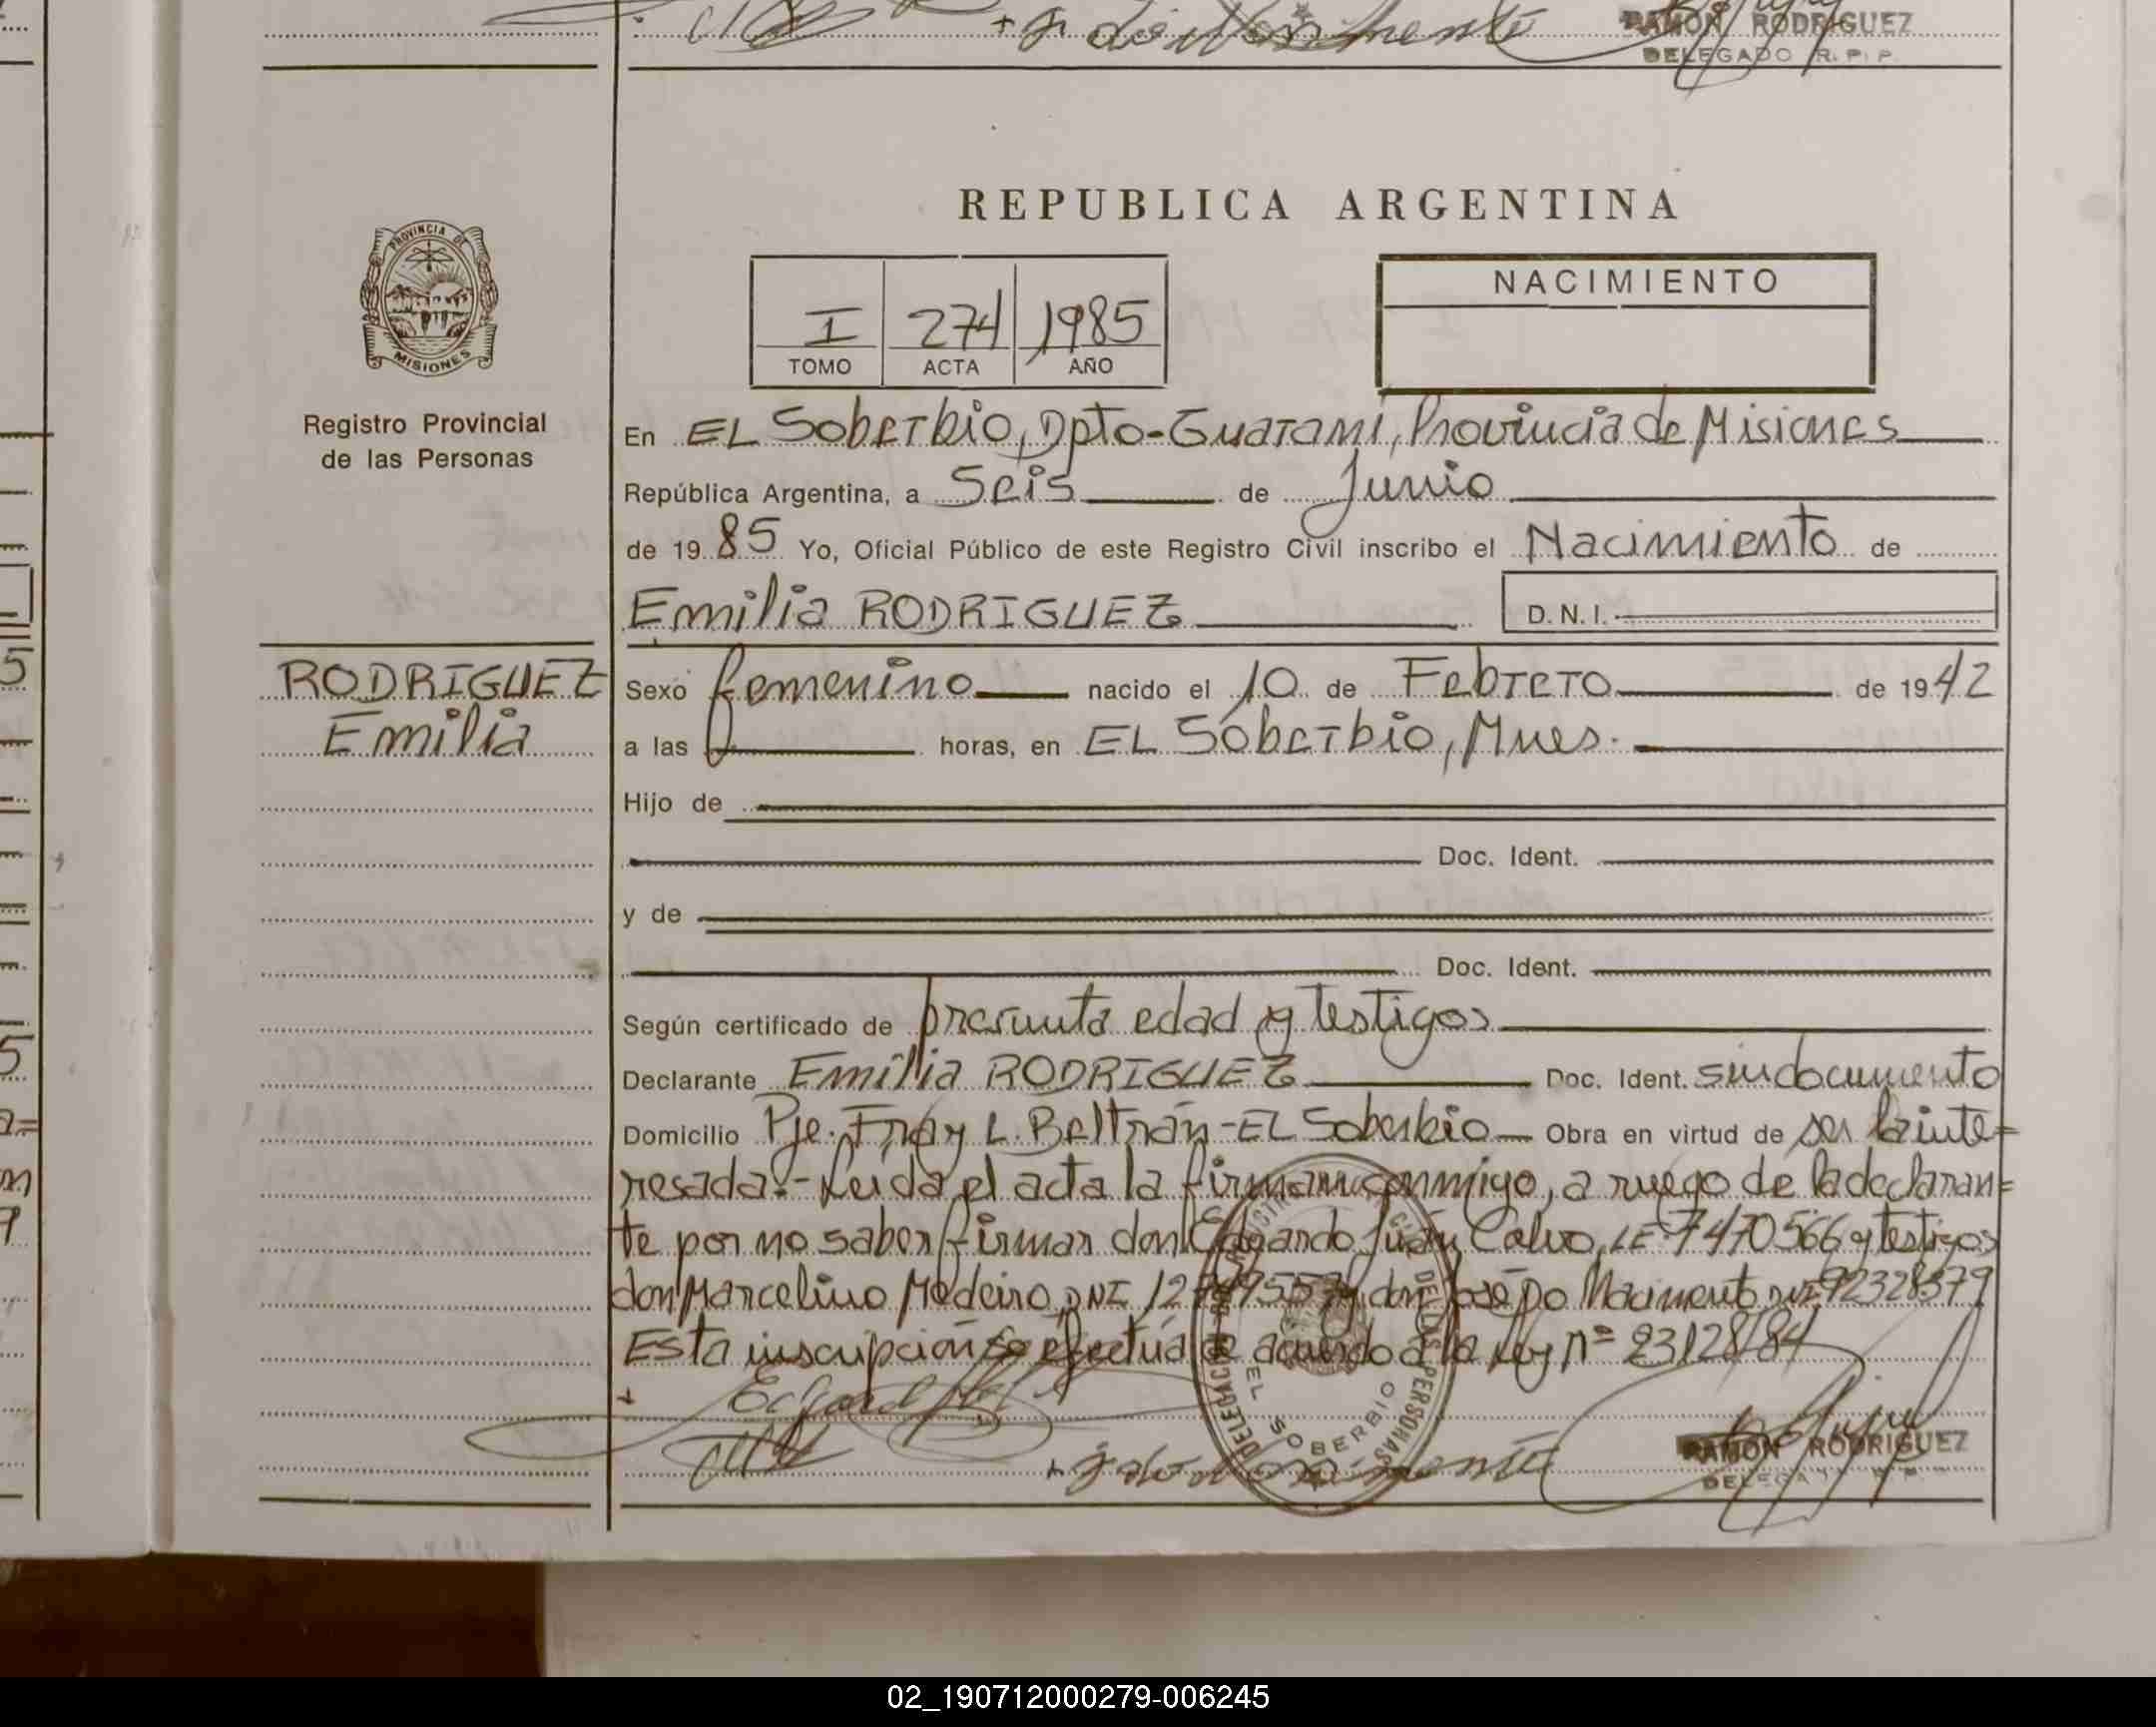 RAMON RODRIGUEZ
DELEGADO R. P. P.
REPUBLICA ARGENTINA
PROVINCIA DE
MISIONES
Registro Provincial
de las Personas
I 274 1985
TOMO ACTA AÑO
NACIMIENTO
En EL Soberbio, Dpto-Guaraní, Provincia de Misiones
República Argentina, a Seis de Junio
de 1985 Yo, Oficial Público de este Registro Civil inscribo el Nacimiento de
Emilia RODRIGUEZ D. N. I.
RODRIGUEZ
Emilia
Sexo femenino nacido el 10 de Febrero de 1942
a las horas, en EL Soberbio, Mnes.
Hijo de
Doc. Ident.
y de
Doc. Ident.
Según certificado de presunta edad y testigos
Declarante Emilia RODRIGUEZ Doc. Ident. sin documento
Domicilio Pje. Fray L. Beltrán-EL Soberbio Obra en virtud de ser la inte=
resada.- Leida el acta la firman conmigo, a ruego de la declaran=
te por no saber firmar don Juan Calvo, LE 7470566 y testigos
don Marcelino Medeiro, DNI y don José Do Nacimento DNI 92328379
Esta inscripción se efectúa de acuerdo a la Ley nº 23128/84
EL SOBERBIO
RAMON RODRIGUEZ
02_190712000279-006245